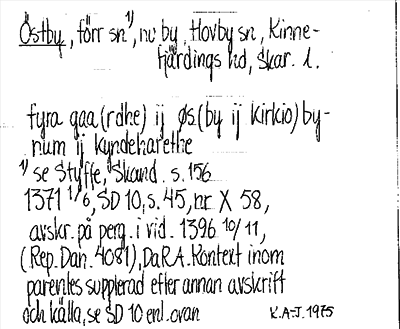 Östby, förr sn¹⁾, nu by, Hovby sn, Kinne-
fjärdings hd, Skar. l.
fyra gaa(rdhe) ij øs(by ij kirkio)by-
num ij kyndeharethe
¹⁾ se Styffe, Skand. s. 156
1371 1/6, SD 10, s. 45, nr X 58,
avskr. på perg. i vid. 1396 10/11,
(Rep. Dan. 4081), DaRA. Kontext inom
parentes supplerad efter annan avskrift
och källa, se SD 10 enl. ovan
K.A-J. 1975